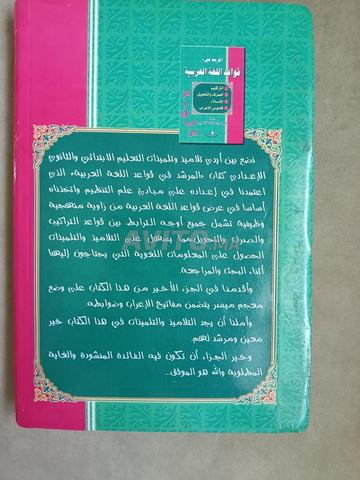 المرشد في:
قواعد اللغة العربية
التراكيب
الصرف والتحويل
الإملاء
قاموس الإعراب
نضع بين أيدي تلاميذ وتلميذات التعليم الابتدائي والثانوي
الإعدادي كتاب «المرشد في قواعد اللغة العربية»، الذي
اعتمدنا في إعداده على مبادئ علم التنظيم واتخذناه
أساسا في عرض قواعد اللغة العربية من زاوية منهجية
وظيفية تشمل جميع أوجه الترابط بين قواعد التراكيب
والصرف والتحويل مما يسهل على التلاميذ والتلميذات
الحصول على المعلومات اللغوية التي يحتاجون إليها
أثناء البحث والمراجعة.
وأقدمنا في الجزء الأخير من هذا الكتاب على وضع
معجم ميسر يتضمن مفاتيح الإعراب وضوابطه.
وأملنا أن يجد التلاميذ والتلميذات في هذا الكتاب خير
معين ومرشد لهم.
وخير الجزاء أن تكون فيه الفائدة المنشودة والغاية
المطلوبة والله هو الموفق...
AVITO.MA